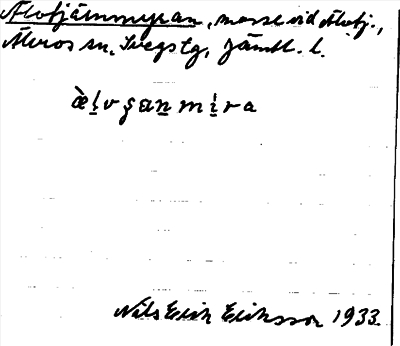 Älvtjärnmyran, mosse vid Älvtj.,
Älvros sn, Svegs tg, Jämtl. l.
æ̀l̠vʂan̠mi̠ra
Nils Erik Eriksson 1933.